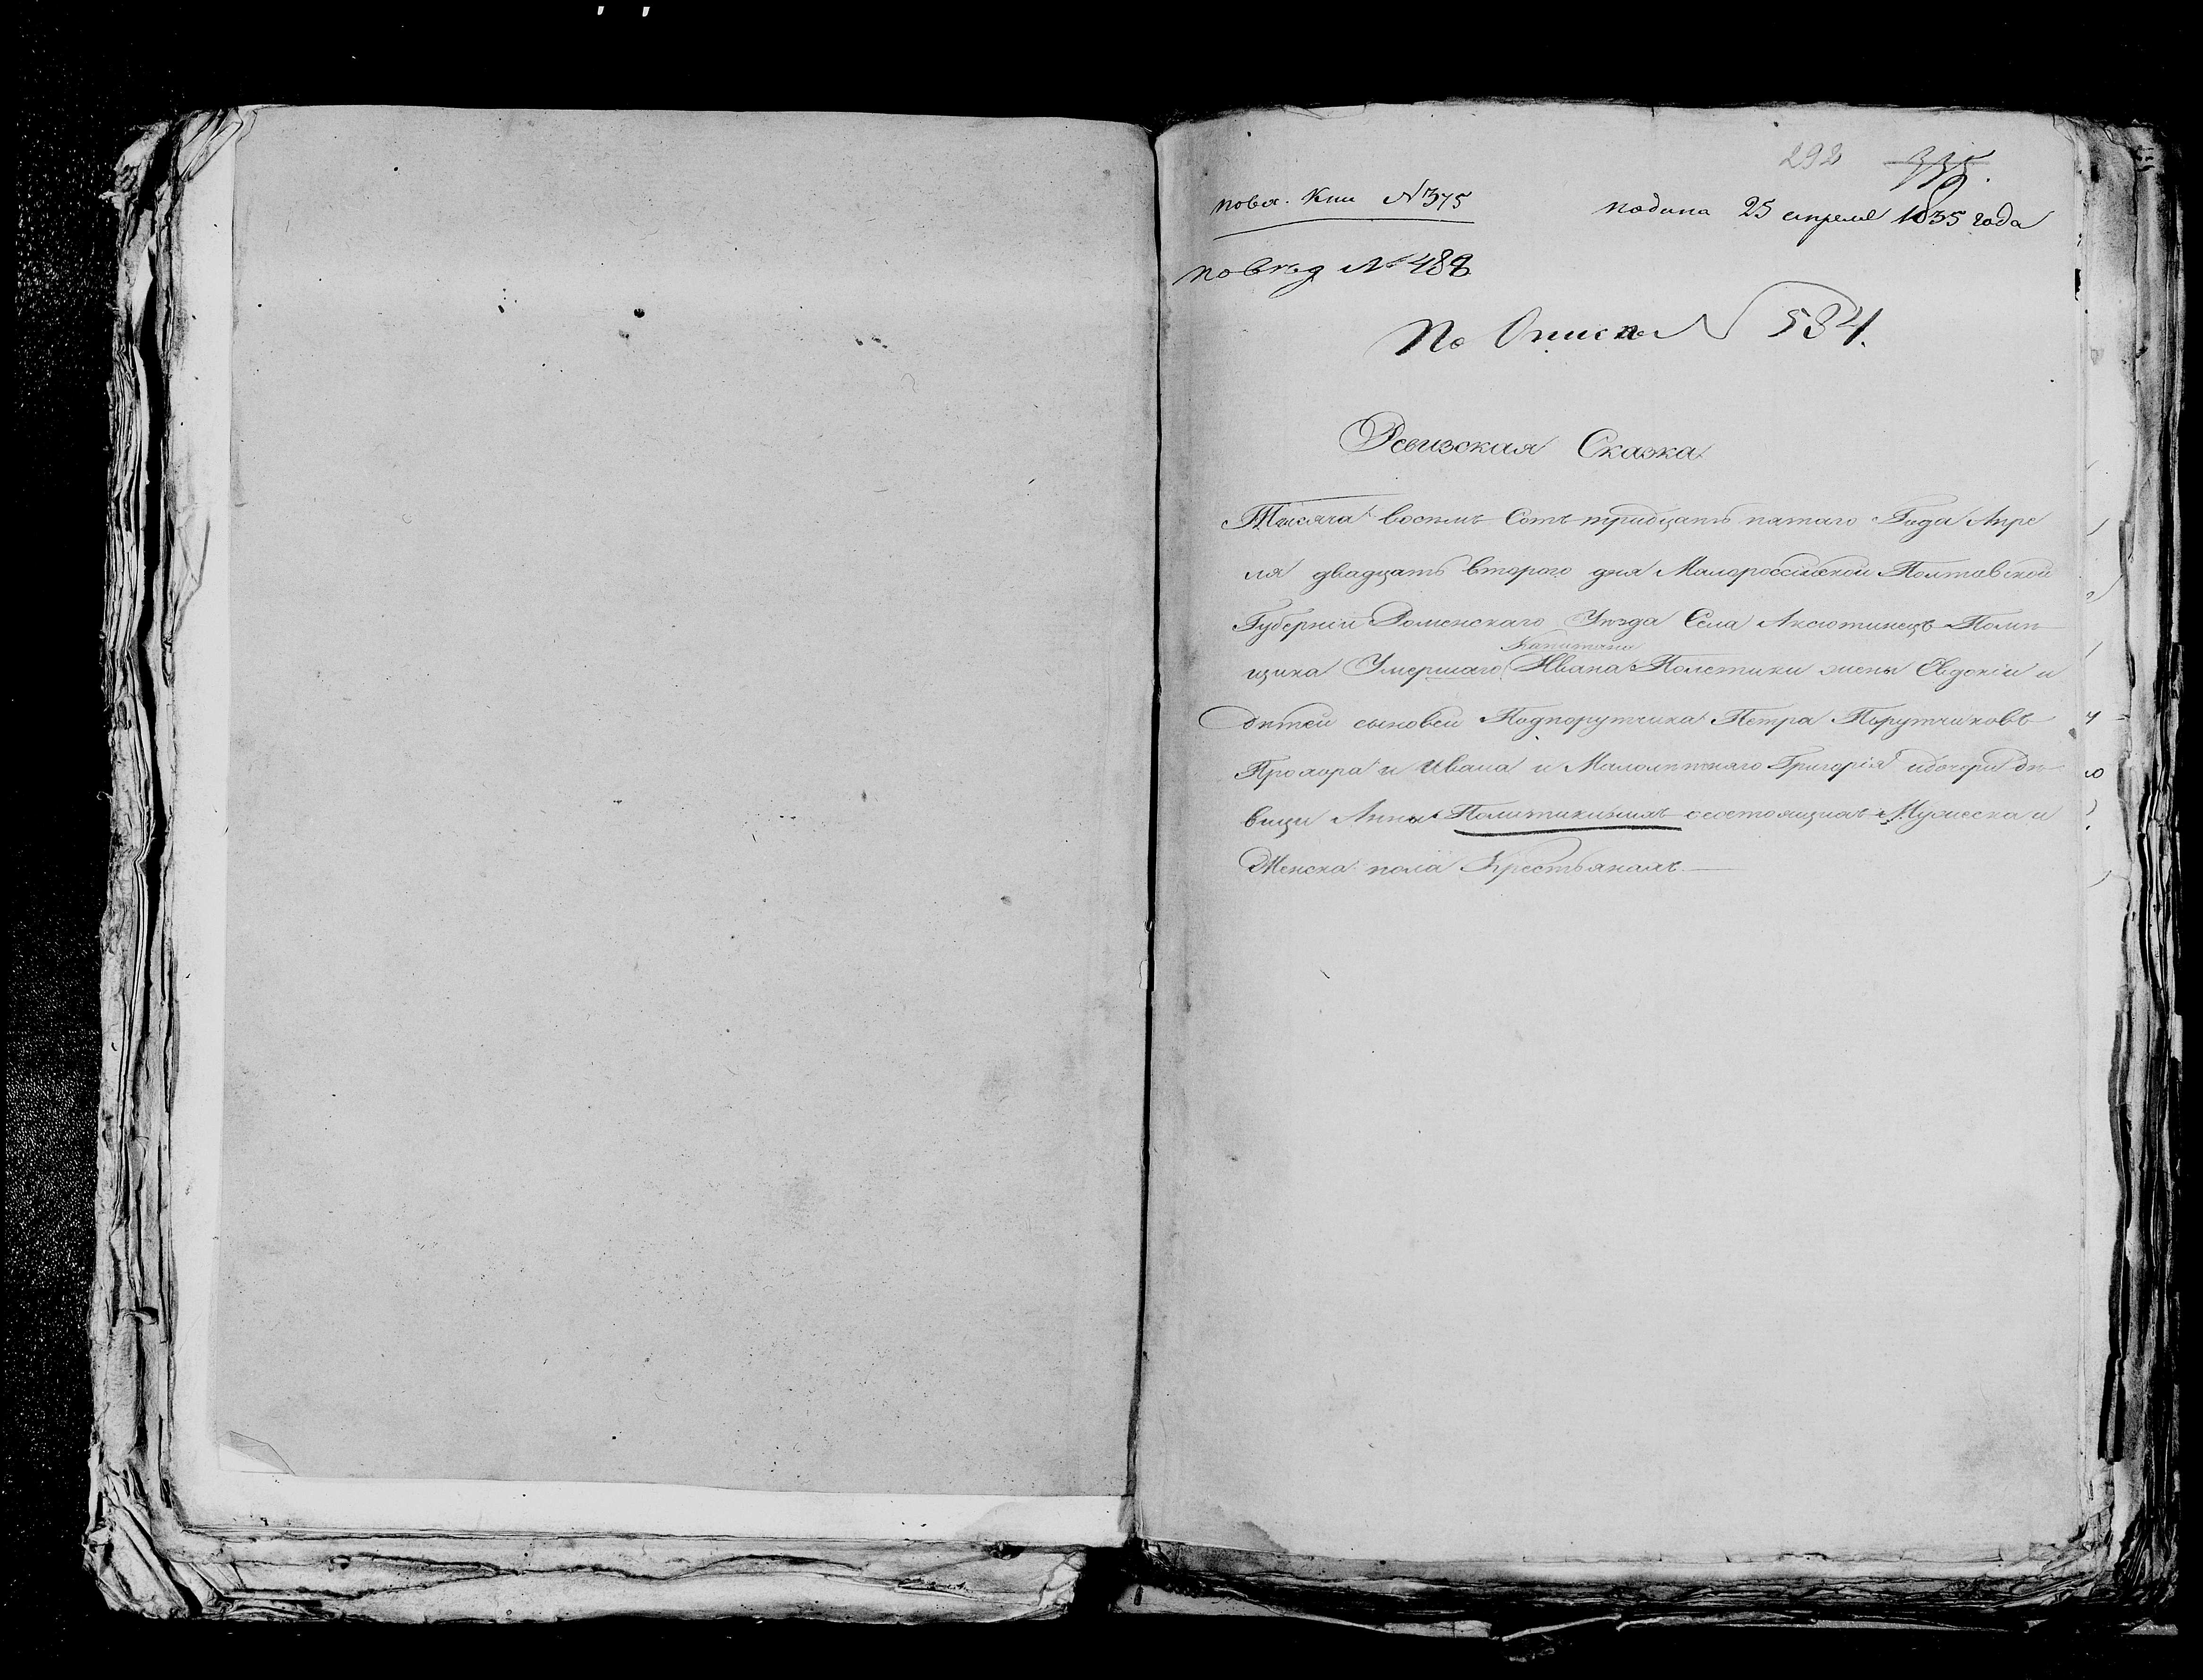 292 335.
по вх. Кни №375
подана 25 апреля 1835 года
по Вѣд № 488
По Описи № 534.
Ревизская Сказка
Тысяча восемъ Сотъ тридцать пятаго Года Апре
ля двадцать второго дня Малороссійской Полтавской
Губерніи Роменскаго Уѣзда Села Аксютинецъ Помѣ
Капитана
щика Умершаго Ивана Полетики жены Евдокіи и
дѣтей сыновей Подпорутчика Петра Порутчиковъ
Прохора и Ивана и Малолѣтнаго Григорія и дочери дѣ
вици Анны Политикиныхъ о состоящихъ Мужеска и
Женска пола Крестьянахъ